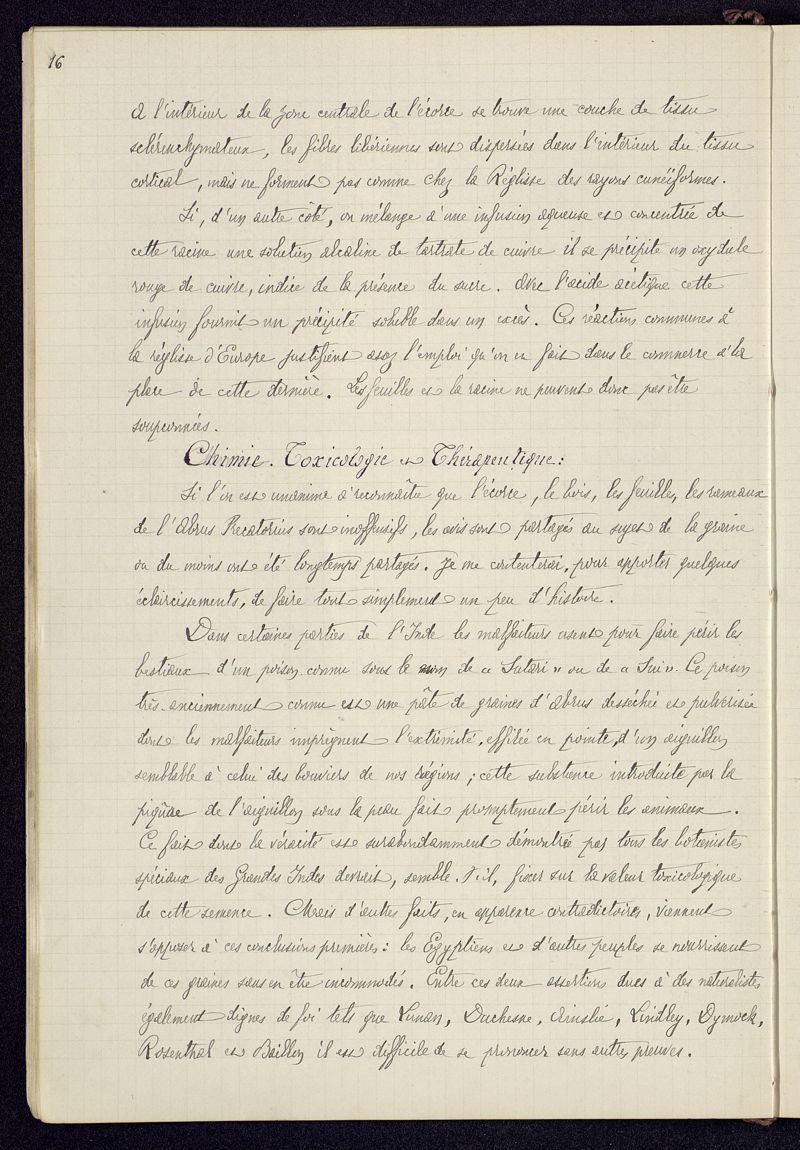 16
A l'intérieur de la zone centrale de l'écorce se trouve une couche de tissu
sclérenchymateux, les fibres libériennes sont dispersées dans l'intérieur du tissu
cortical, mais ne forment pas comme chez la Réglisse des rayons cunéiformes.
Si, d'un autre côté, on mélange à une infusion aqueuse et concentrée de
cette racine une solution alcaline de tartrate de cuivre il se précipite un oxydule
rouge de cuivre, indice de la présence du sucre. Avec l'acide acétique cette
infusion fournit un précipité soluble dans un excès. Ces réactions communes à
la réglisse d'Europe justifient assez l'emploi qu'on en fait dans le commerce à la
place de cette dernière. Les feuilles et la racine ne peuvent donc pas être
soupçonnées.
Chimie. Toxicologie et Thérapeutique:
Si l'on est unanime à reconnaître que l'écorce, le bois, les feuilles, les rameaux
de l'Abrus Precatorius sont inoffensifs, les avis sont partagés au sujet de la graine
ou du moins ont été longtemps partagés. Je me contenterai, pour apporter quelques
éclaircissements, de faire tout simplement un peu d'histoire.
Dans certaines parties de l'Inde les malfaiteurs usent pour faire périr les
bestiaux d'un poison connu sous le nom de « Sutari » ou de « Sui ». Ce poison
très-anciennement connu est une pâte de graines d'Abrus desséchée et pulvérisée
dont les malfaiteurs imprègnent l'extrémité, effilée en pointe, d'un aiguillon
semblable à celui des bouviers de nos régions; cette substance introduite par la
piqûre de l'aiguillon sous la peau fait promptement périr les animaux.
Ce fait dont la véracité est surabondamment démontrée par tous les botanistes
spéciaux des Grandes Indes devrait, semble-t-il, fixer sur la valeur toxicologique
de cette semence. Mais d'autres faits, en apparence contradictoires, viennent
s'opposer à ces conclusions premières: les Egyptiens et d'autres peuples se nourrissent
de ces graines sans en être incommodés. Entre ces deux assertions dues à des naturalistes
également dignes de foi tels que Lunan, Duchesne, Ainslie, Lindley, Dymock,
Rosenthal et Baillon il est difficile de se prononcer sans autres preuves.